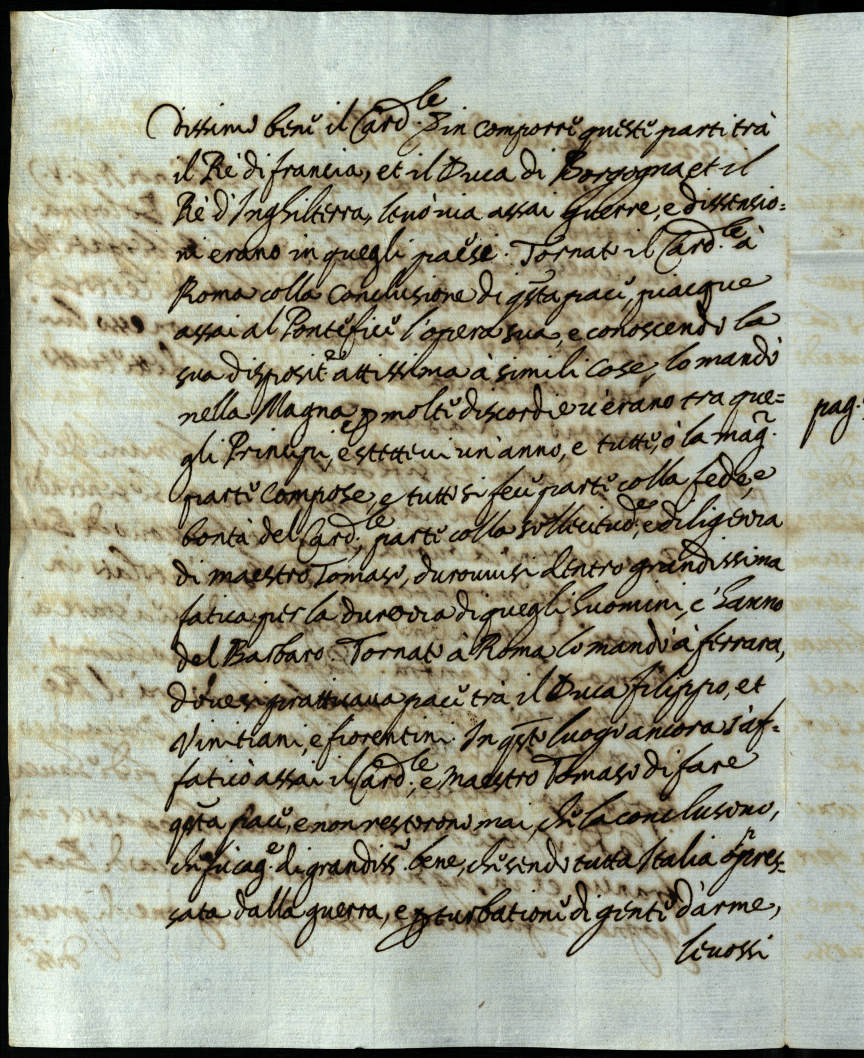 dissimo bene il Card.le in comporre queste parti trà
il Rè di francia, et il Duca di Borgogna et il
Rè d'Inghilterra, levò via assai Guerre, e dissensio=
ni erano in quegli paesi. Tornato il Card.le à
Roma colla Conclusione di qsta pace, piacque
assai al Pontefice l'opera sua, e conoscendo la
sua disposit.e attissima à simili Cose, lo mandò
nella Magna p molte discordie v'erano tra que=
gli Principi, e stettevi un'anno, e tutte, ò la mag.r
parte compose, e tutto si fece parte colla fede, e
bontà del Card.le, parte colla sollecitud.e, e diligenza
di maestro Tomaso, durovvisi dentro grandissima
fatica per la durezza di quegli huomini, c'hanno
del Barbaro. Tornato à Roma lo mandò à ferrara,
dove si pratticava pace trà il Duca filippo, et
Vinitiani, e fiorentini. In qsto luogo ancora s'af=
faticò assai il Card.le, e Maestro Tomaso di fare
qsta pace, e non restorono mai, che la conclusono,
che fu cag.e di grandiss.o bene, che sendo tutta Italia oppres=
sata dalla guerra, e pturbatione di gente d'arme,
levossi
pag.